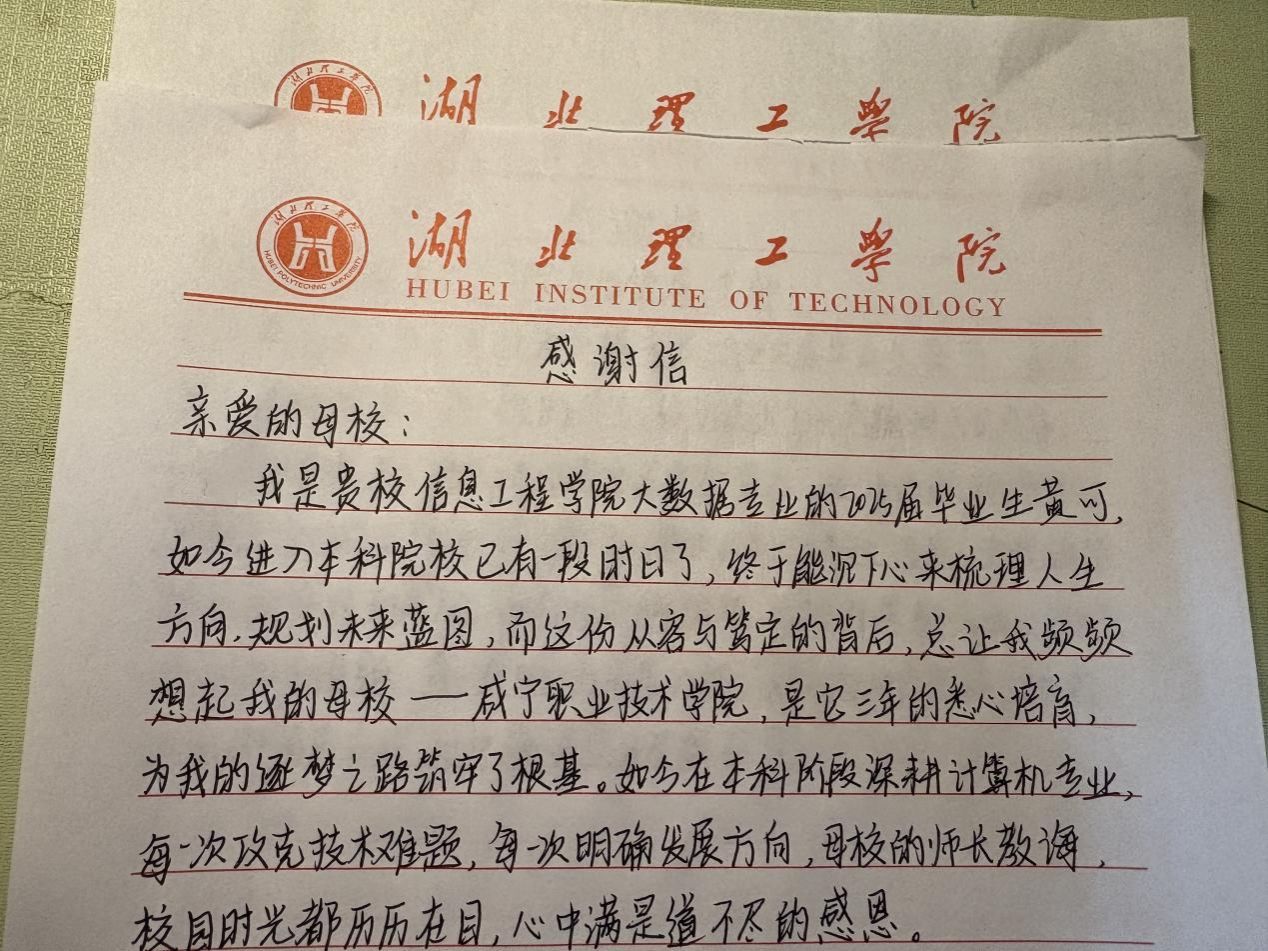 湖北理工学院
湖北理工學院
湖北理工学院
HUBEI POLYTECHNIC UNIVERSITY
湖北理工學院
HUBEI INSTITUTE OF TECHNOLOGY
感谢信
亲爱的母校：
我是贵校信息工程学院大数据专业的2025届毕业生黄可，
如今进入本科院校已有一段时日了，终于能沉下心来梳理人生
方向、规划未来蓝图，而这份从容与笃定的背后，总让我频频
想起我的母校——咸宁职业技术学院，是它三年的悉心培育，
为我的逐梦之路筑牢了根基。如今在本科阶段深耕计算机专业，
每一次攻克技术难题，每一次明确发展方向，母校的师长教诲、
校园时光都历历在目，心中满是道不尽的感恩。